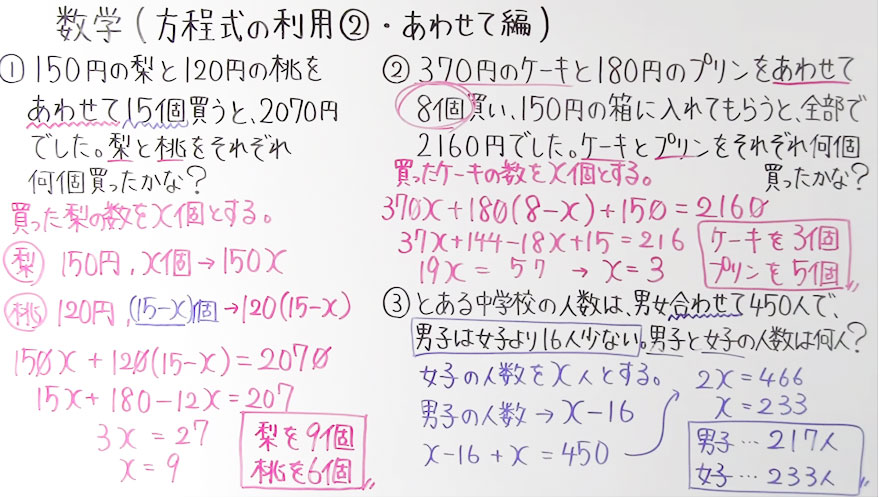 数学(方程式の利用②・あわせて編)
① 150円の梨と120円の桃を
あわせて15個買うと、2070円
でした。梨と桃をそれぞれ
何個買ったかな?
買った梨の数をx個とする。
梨 150円, x個→150x
桃 120円, (15-x)個→120(15-x)
150x+120(15-x)=2070
15x+180-12x=207
3x=27
x=9
梨を9個
桃を6個
② 370円のケーキと180円のプリンをあわせて
8個買い、150円の箱に入れてもらうと、全部で
2160円でした。ケーキとプリンをそれぞれ何個
買ったかな?
買ったケーキの数をx個とする。
370x+180(8-x)+150=2160
37x+144-18x+15=216
19x=57→x=3
ケーキを3個
プリンを5個
③ とある中学校の人数は、男女合わせて450人で、
男子は女子より16人少ない。男子と女子の人数は何人?
女子の人数をx人とする。
男子の人数→x-16
x-16+x=450
2x=466
x=233
男子…217人
女子…233人